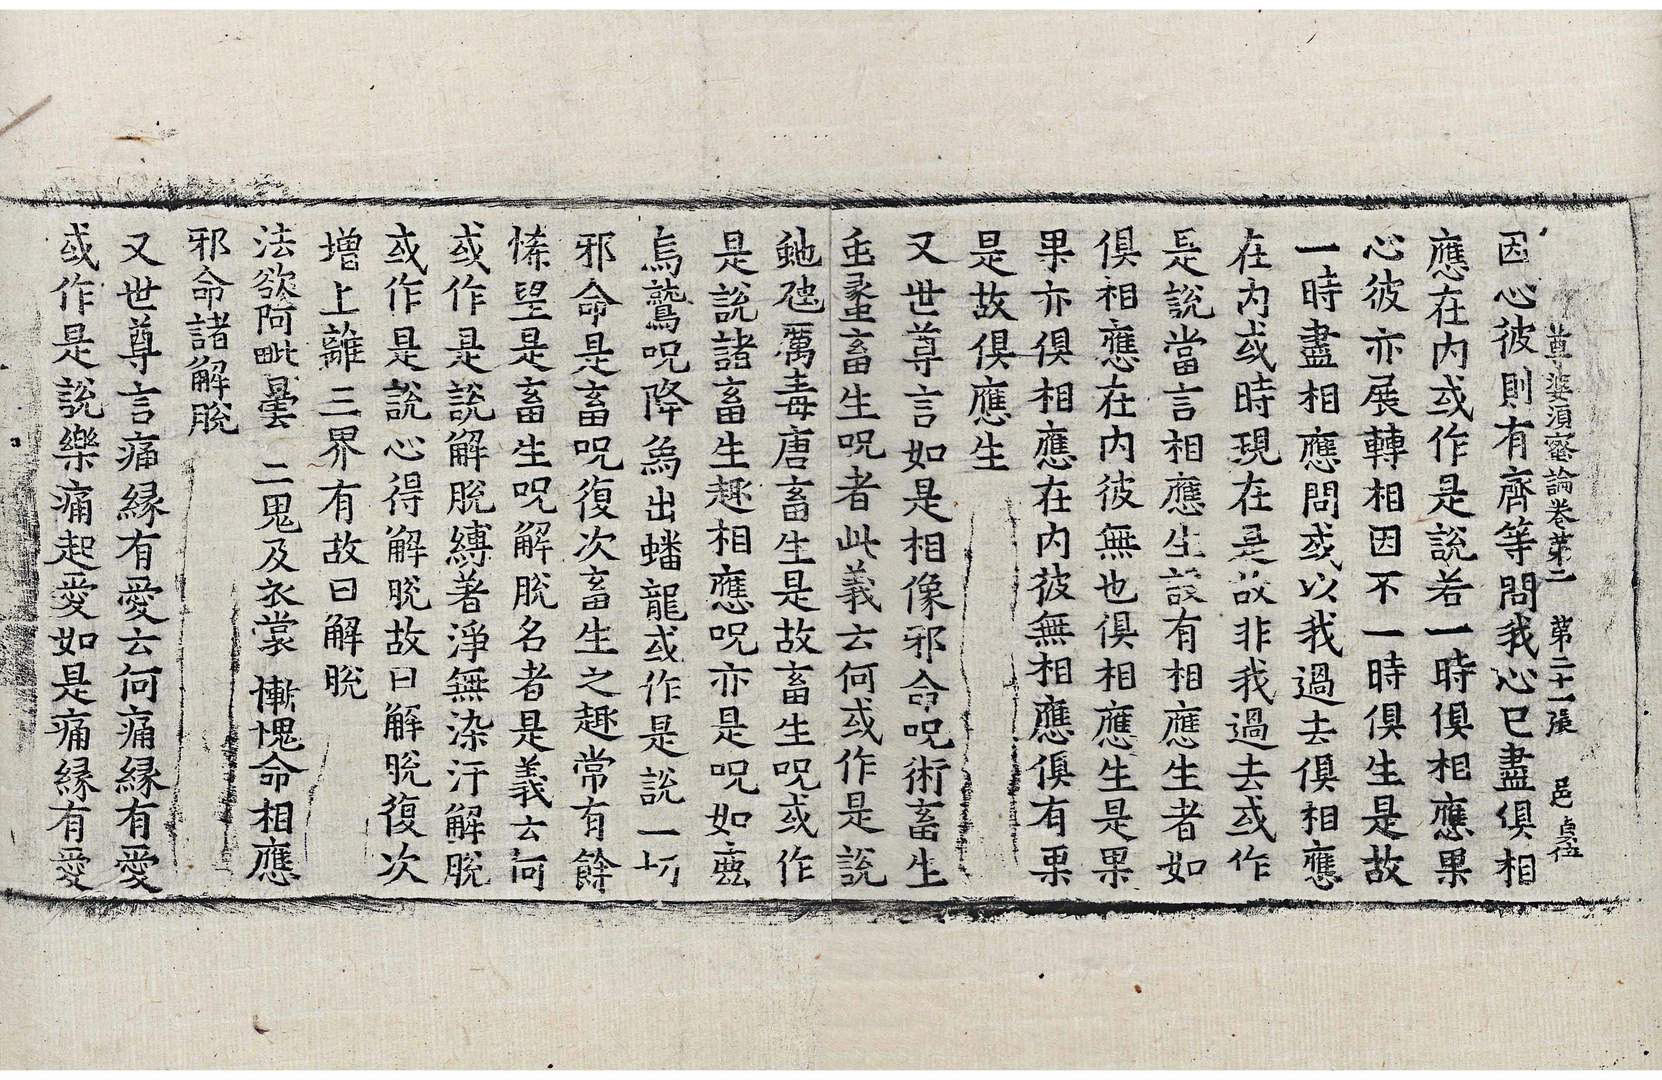 尊婆須蜜論卷苐二　苐二十一張　邑
因心彼則有齊等問我心已盡俱相
應在內或作是說若一時俱相應果
心彼亦展轉相因不一時俱生是故
一時盡相應問或以我過去俱相應
在內或時現在是故非我過去或作
是說當言相應生設有相應生者如
俱相應在內彼無也俱相應生是果
果亦俱相應在內彼無相應俱有果
是故俱應生
又世尊言如是相像邪命呪術畜生
畜生呪者此義云何或作是說
虵虺厲毒唐畜生是故畜生呪或作
是說諸畜生趣相應呪亦是呪如
烏鷲呪降烏出蟠龍或作是說一切
邪命是畜呪復次畜生之趣常有餘
悕望是畜生呪解脫名者是義云何
或作是說解脫縛著淨無染汙解脫
或作是說心得解脫故曰解脫復次
增上離三界有故曰解脫
法欲阿毗曇　二鬼及衣裳　慚愧命相應
邪命諸解脫
又世尊言痛緣有愛云何痛緣有愛
或作是說樂痛起愛如是痛緣有愛